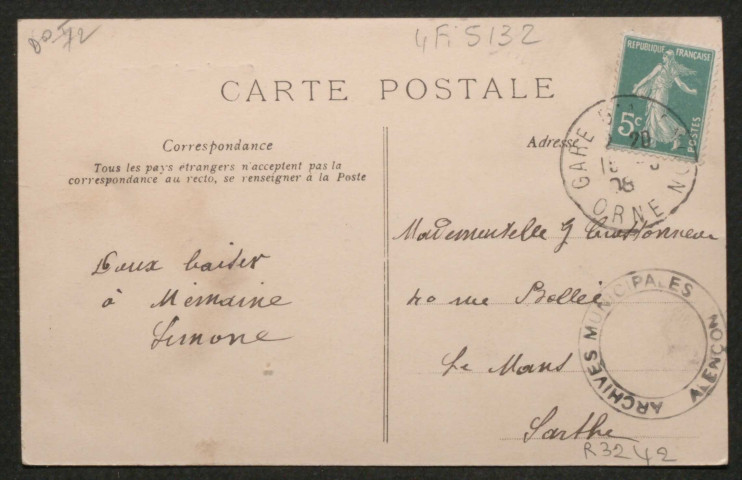 4Fi 5132
CARTE POSTALE
REPUBLIQUE FRANÇAISE
5c
POSTES
GARE
ORNE
Correspondance
Tous les pays étrangers n'acceptent pas la
correspondance au recto, se renseigner à la Poste
Adresse
Doux baiser
à Mémaine
Simone
Mademoiselle G
40 rue Bollée
Le Mans
Sarthe
ARCHIVES MUNICIPALES
ALENÇON
R3242